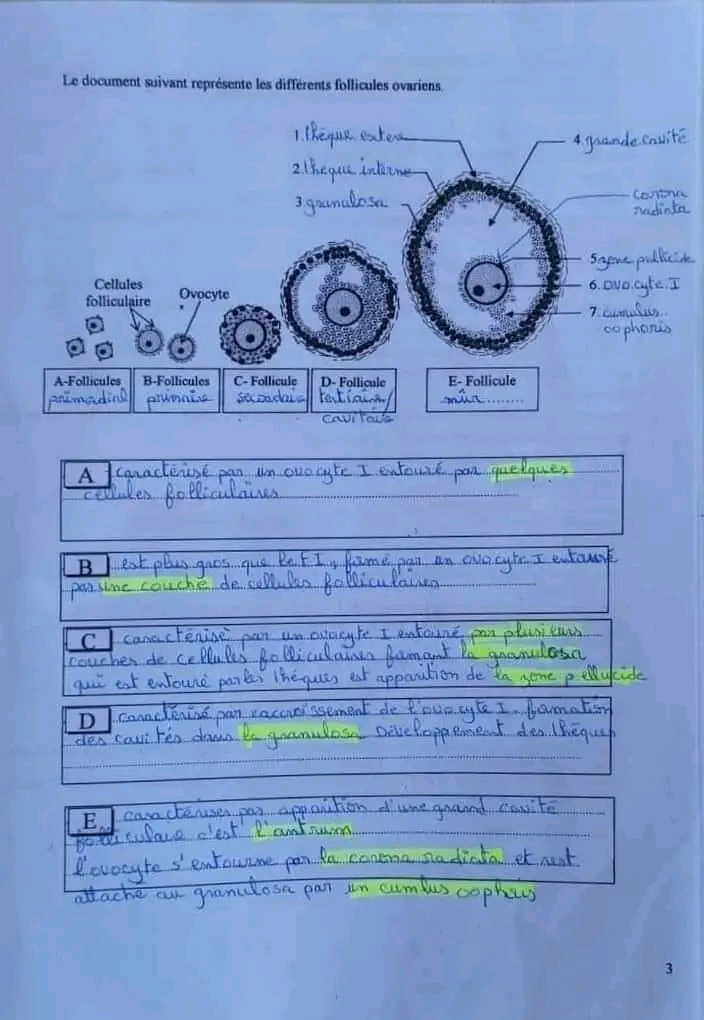 Le document suivant représente les différents follicules ovariens.
1. thèque extere
2. thèque interne
3. granulosa
4. grande cavité
corona
radinta
5. zone pellicide
6. ovocyte I
7. cumulus
oophoris
Cellules
folliculaire
Ovocyte
A-Follicules
primordial
B-Follicules
primaire
C- Follicule
secondaire
D- Follicule
tertiaire/
cavitaire
E- Follicule
mûr
A caractérisé par un ovocyte I entouré par quelques
cellules folliculaires
B est plus gros que le F I, formé par un ovocyte I entouré
par une couche de cellules folliculaires
C caractérisé par un ovocyte I entouré par plusieurs
couches de cellules folliculaires formant la granulosa
qui est entouré par les thèques est apparition de la zone pellucide
D caractérisé par accroissement de l'ovocyte I. formation
des cavités dans la granulosa Développement des thèques
E caractérises par apparition d'une grand cavité
folliculaire c'est l'antrum
l'ovocyte s'entourne par la corona radiata et rest
attache au granulosa par un cumlus oophris
3